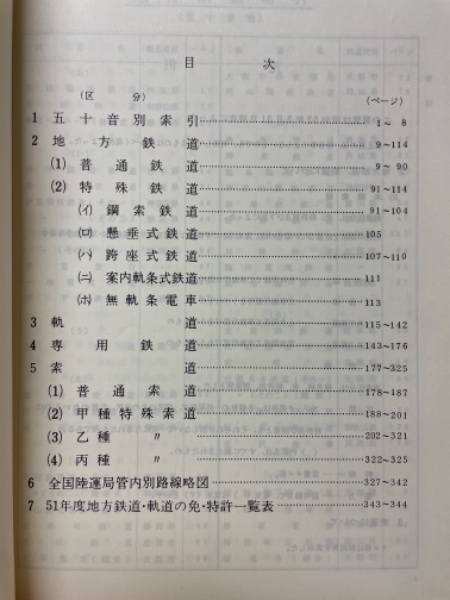 目 次
(区 分) (ページ)
1 五十音別索引 1~ 8
2 地方鉄道 9~114
(1) 普通鉄道 9~ 90
(2) 特殊鉄道 91~114
(イ) 鋼索鉄道 91~104
(ロ) 懸垂式鉄道 105
(ハ) 跨座式鉄道 107~110
(ニ) 案内軌条式鉄道 111
(ホ) 無軌条電車 113
3 軌道 115~142
4 専用鉄道 143~176
5 索道 177~325
(1) 普通索道 178~187
(2) 甲種特殊索道 188~201
(3) 乙種 〃 202~321
(4) 丙種 〃 322~325
6 全国陸運局管内別路線略図 327~342
7 51年度地方鉄道・軌道の免・特許一覧表 343~344